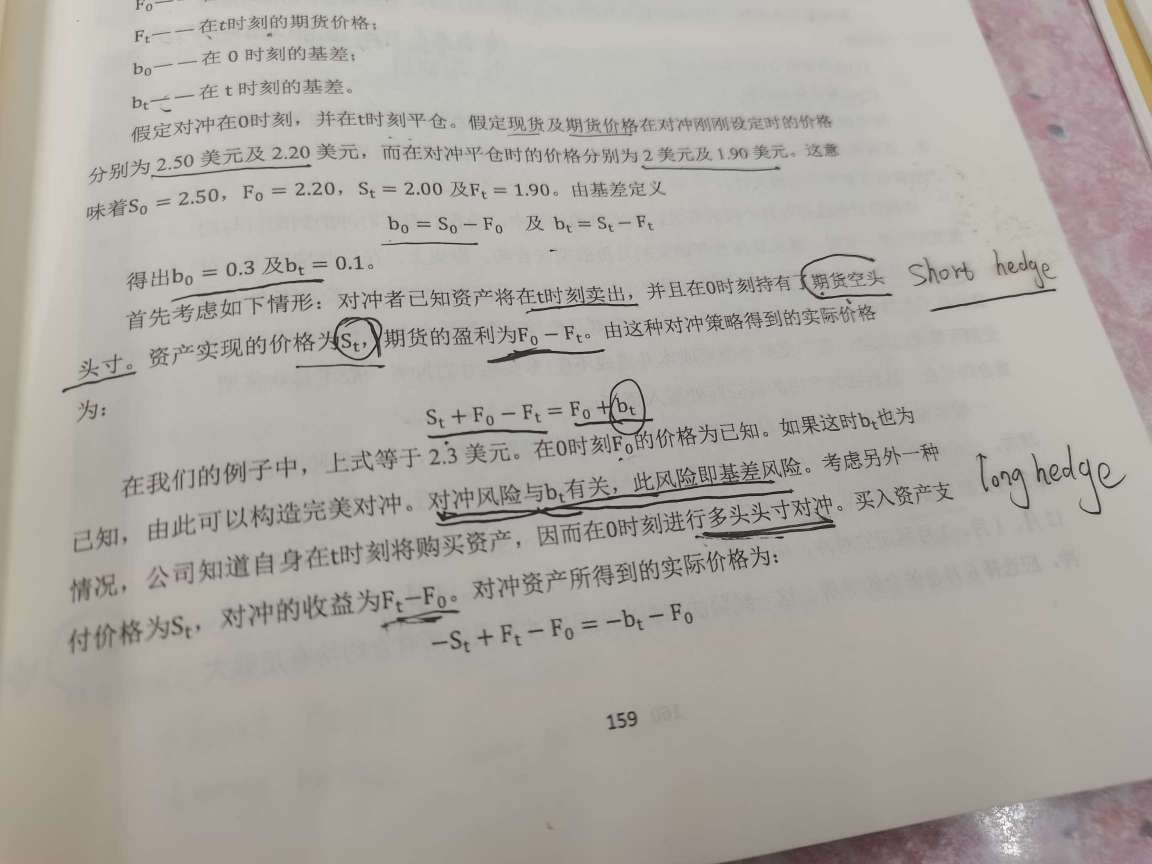 F₀——
Fₜ——在t时刻的期货价格；
b₀——在 0 时刻的基差；
bₜ——在 t 时刻的基差。
假定对冲在0时刻，并在t时刻平仓。假定现货及期货价格在对冲刚刚设定时的价格
分别为 2.50 美元及 2.20 美元，而在对冲平仓时的价格分别为 2 美元及 1.90 美元。这意
味着S₀ = 2.50，F₀ = 2.20，Sₜ = 2.00 及Fₜ = 1.90。由基差定义
b₀ = S₀ − F₀ 及 bₜ = Sₜ − Fₜ
得出b₀ = 0.3 及bₜ = 0.1。
首先考虑如下情形：对冲者已知资产将在t时刻卖出，并且在0时刻持有了期货空头 short hedge
头寸。资产实现的价格为Sₜ，期货的盈利为F₀ − Fₜ。由这种对冲策略得到的实际价格
为：
Sₜ + F₀ − Fₜ = F₀ + bₜ
在我们的例子中，上式等于 2.3 美元。在0时刻F₀的价格为已知。如果这时bₜ也为
已知，由此可以构造完美对冲。对冲风险与bₜ有关，此风险即基差风险。考虑另外一种 long hedge
情况，公司知道自身在t时刻将购买资产，因而在0时刻进行多头头寸对冲。买入资产支
付价格为Sₜ，对冲的收益为Fₜ−F₀。对冲资产所得到的实际价格为：
−Sₜ + Fₜ − F₀ = −bₜ − F₀
159